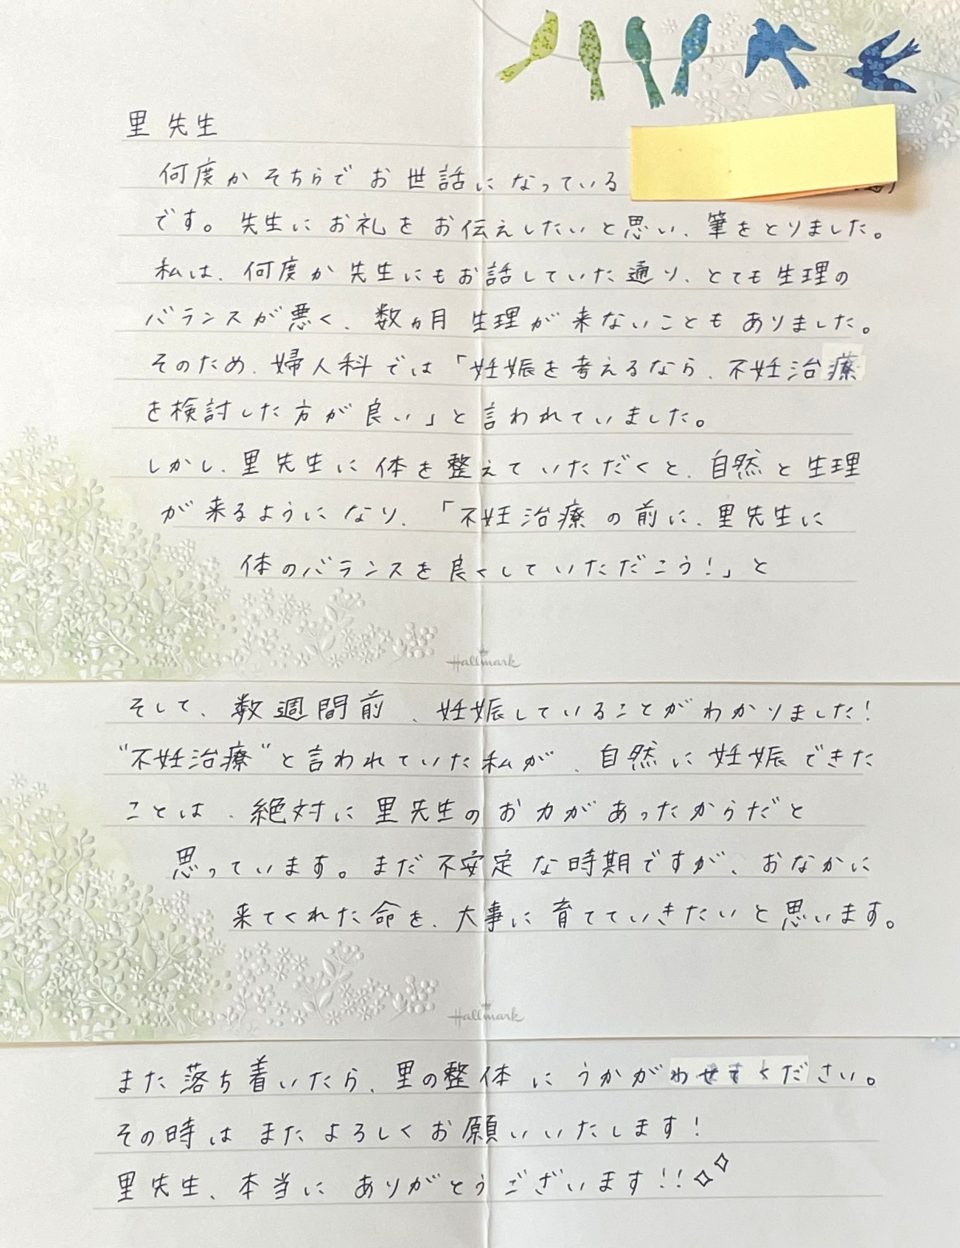 里先生
何度かそちらでお世話になっている
です。先生にお礼をお伝えしたいと思い、筆をとりました。
私は、何度か先生にもお話していた通り、とても生理の
バランスが悪く、数ヵ月生理が来ないこともありました。
そのため、婦人科では「妊娠を考えるなら、不妊治療
を検討した方が良い」と言われていました。
しかし、里先生に体を整えていただくと、自然と生理
が来るようになり、「不妊治療の前に、里先生に
体のバランスを良くしていただこう!」と
Hallmark
そして、数週間前、妊娠していることがわかりました!
"不妊治療"と言われていた私が、自然に妊娠できた
ことは、絶対に里先生のお力があったからだと
思っています。まだ不安定な時期ですが、おなかに
来てくれた命を、大事に育てていきたいと思います。
Hallmark
また落ち着いたら、里の整体にうかがわせてください。
その時はまたよろしくお願いいたします!
里先生、本当にありがとうございます!!